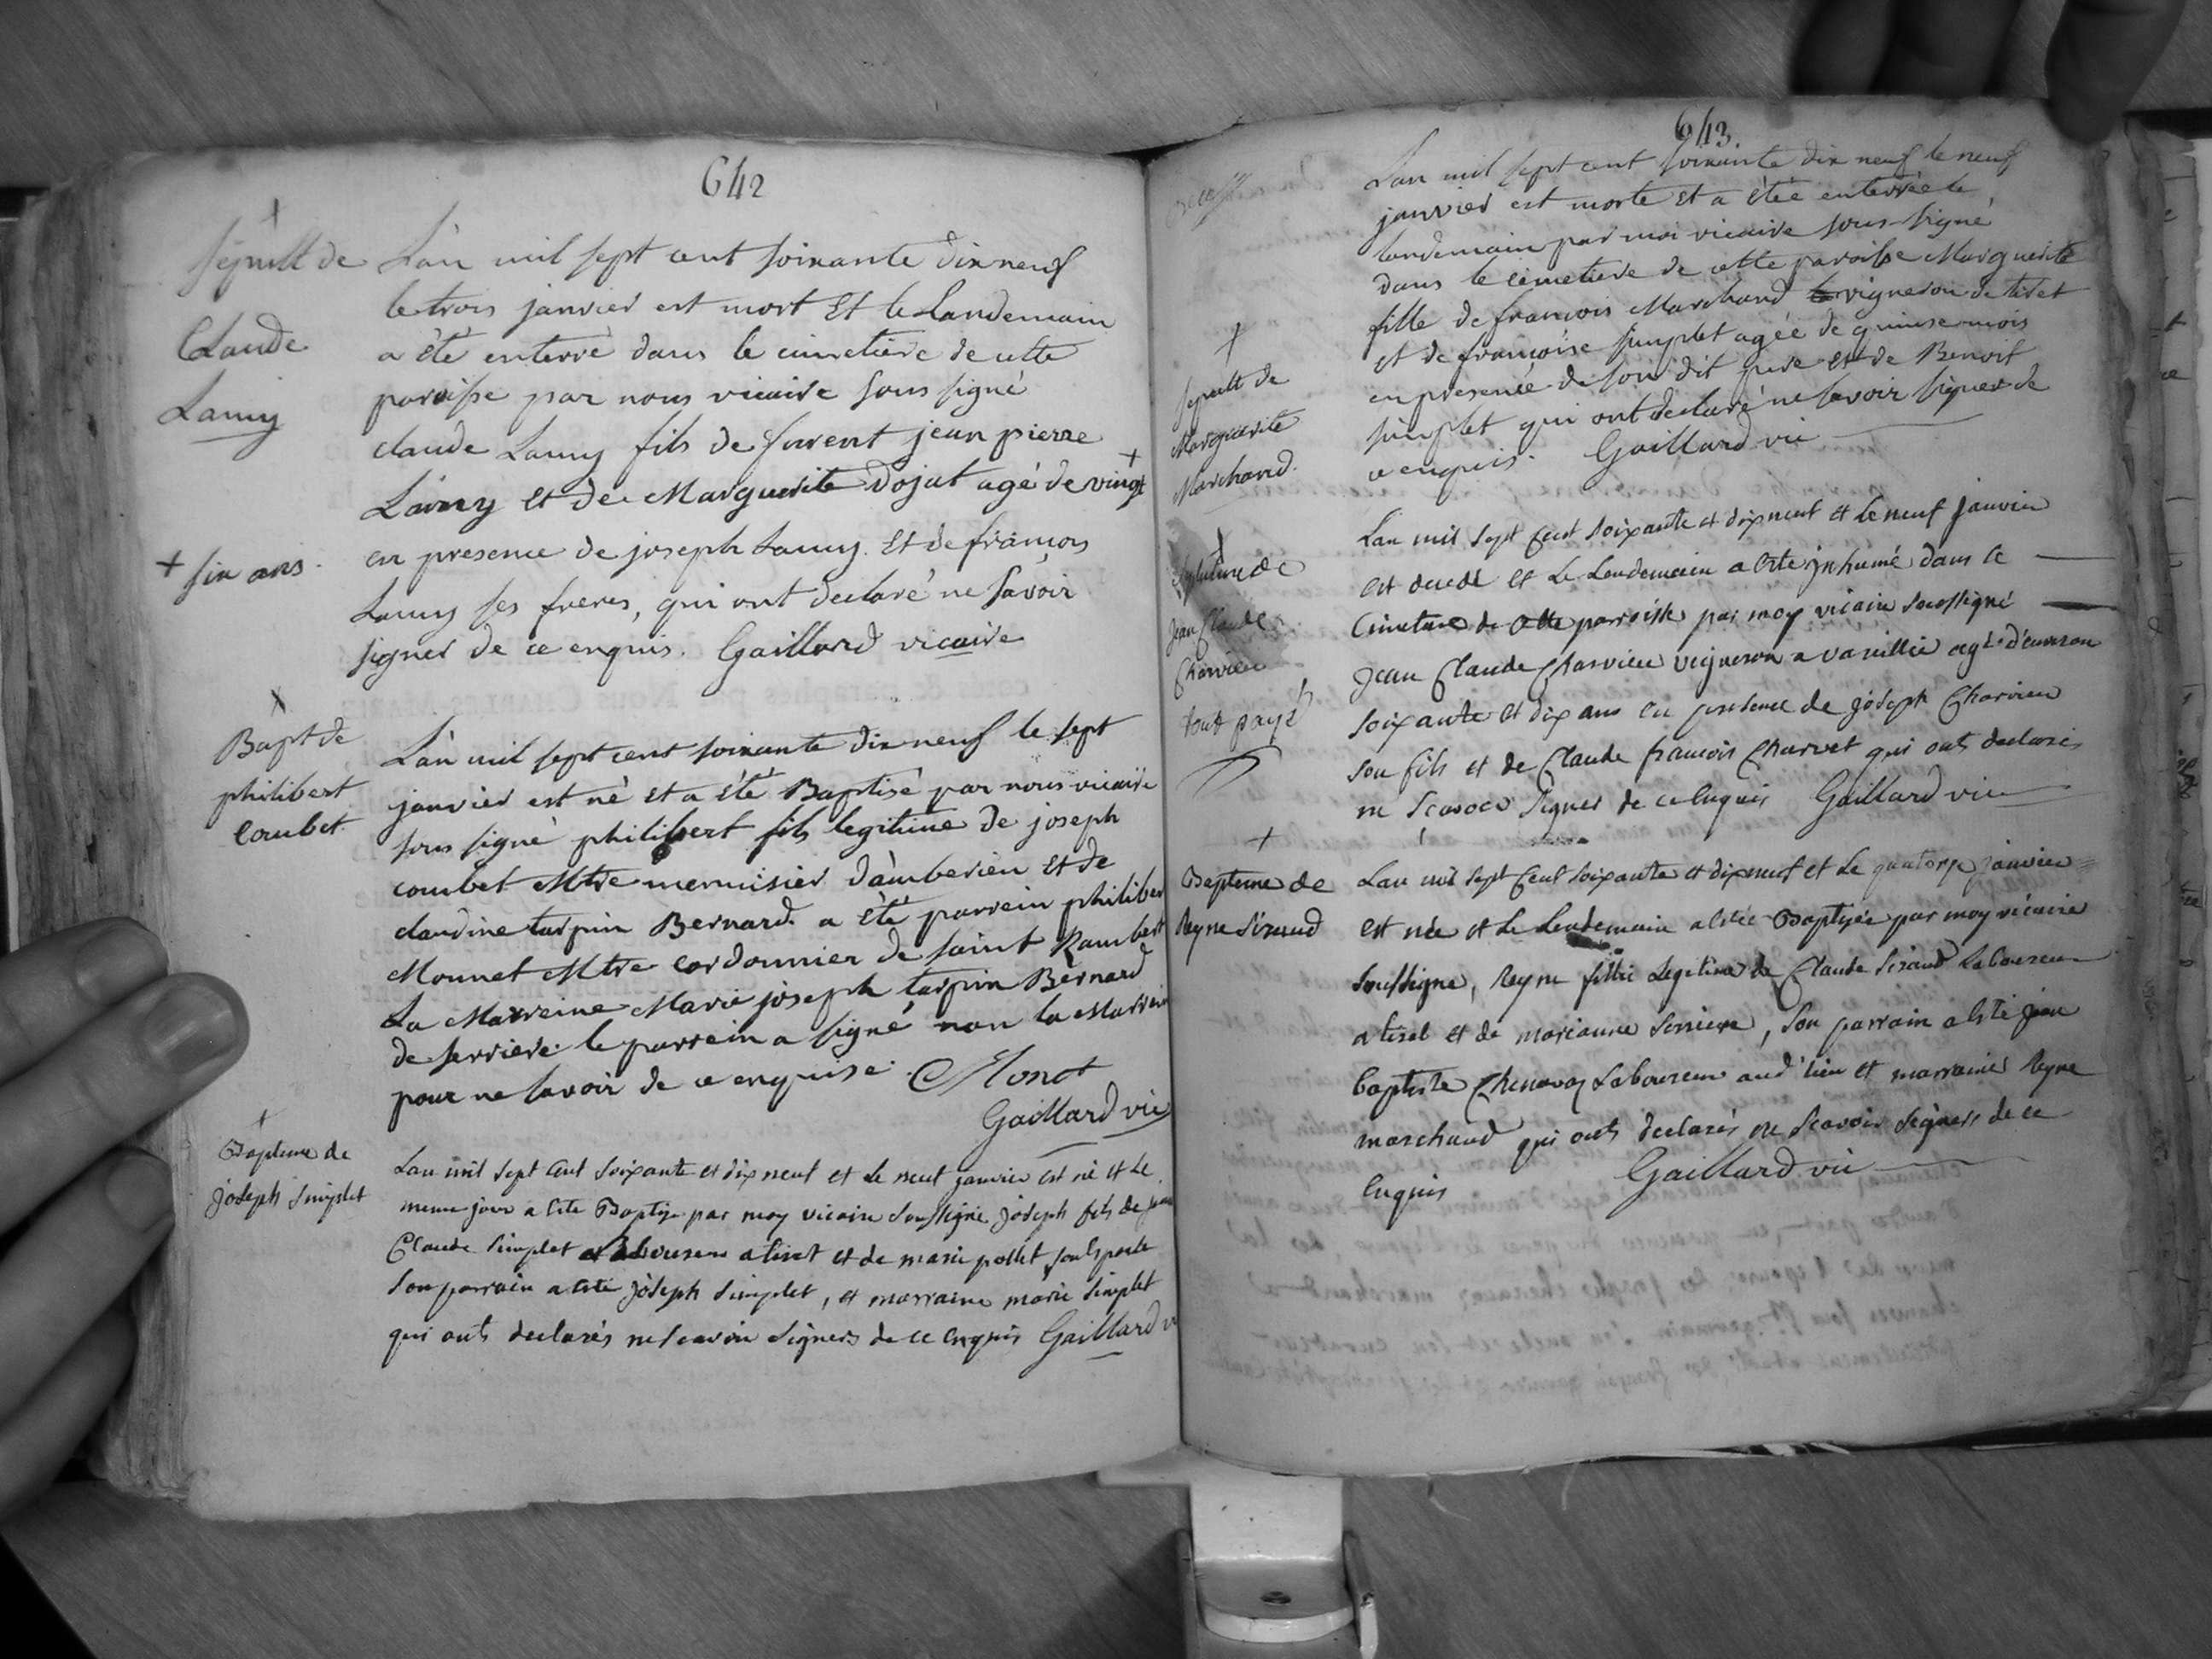 642
Sepult de
Claude
Lamy
L'an mil sept cent soixante dix neuf
le trois janvier est mort Et le Landemain
a été enterré dans le cimetière de cette
paroisse par nous vicaire sous signé
claude Lamy fils de furent jean pierre
Lamy et de Marguerite Dojat agé de vingt +
+ six ans.
en presence de joseph Lamy Et de francois
Lamy ses freres, qui ont declaré ne savoir
signer de ce enquis. Gaillard vicaire
Bapt de
philibert
Combet
L'an mil sept cent soixante dix neuf le sept
janvier est né et a été Baptisé par nous vicaire
sous signé philibert fils legitime de joseph
combet Mtre menuisier d'amberieu Et de
claudine tarpin Bernard a été parrein philibert
Monnet Mtre cordonnier de saint Rambert
La Marreine Marie joseph tarpin Bernard
de serriere. le parrein a signé non la Marrein
pour ne savoir de ce enquise. Monet
Gaillard vic
Bapteme de
joseph Simplet
Lan mil sept Cent soixante et dix neuf et le neuf janvier est né et Le
meme jour a eté Baptizé par moy vicaire soussigné joseph fils de jean
Claude Simplet Laboureur a tiret et de marie pollet
son parrain a eté joseph Simplet, et marraine marie Simplet
qui onts declarés ne scavoir Signers de ce enquis Gaillard v
643
+
Sepult de
Marguerite
Marchand.
L'an mil sept cent soixante dix neuf le neuf
janvier est morte Et a étée enterrée le
landemain par moi vicaire sous signé
dans le cimetiere de cette paroisse Marguerite
fille de francois Marchand vigneron de tiret
et de francoise simplet agée de quinse mois
en presence de son dit pere et de Benoit
simplet qui ont declaré ne savoir signer de
ce enquis. Gaillard vic
Sepulture de
Jean Claude
Charvieu
tout payé
Lan mil Sept Cent Soixante et dix neuf et le neuf Janvier
est decedé et Le Lendemain a eté jnhumé dans le
Cimetiere de cette parroisse par moy vicaire soussigné
Jean Claude Charvieu vigneron a vareillie agé d'environ
soixante et dix ans en presence de joseph Charvieu
son fils et de Claude francois Charvet qui onts declarés
ne Scavoir Signer de ce Enquis Gaillard vic
+
Bapteme de
Reyne Siraud
Lan mil Sept Cent Soixante et dix neuf et Le quatorze janvier
est née et Le Lendemain a etée Baptizée par moy vicaire
soussigné, Reyne fillie Legitime de Claude Siraud Laboureur
a tiret et de marianne Serriere, son parrain a eté jean
baptiste Chenavaz Laboureur aud' lieu et marraine Reyne
marchand qui onts declarés ne Scavoir Signers de ce
Enquis Gaillard vic